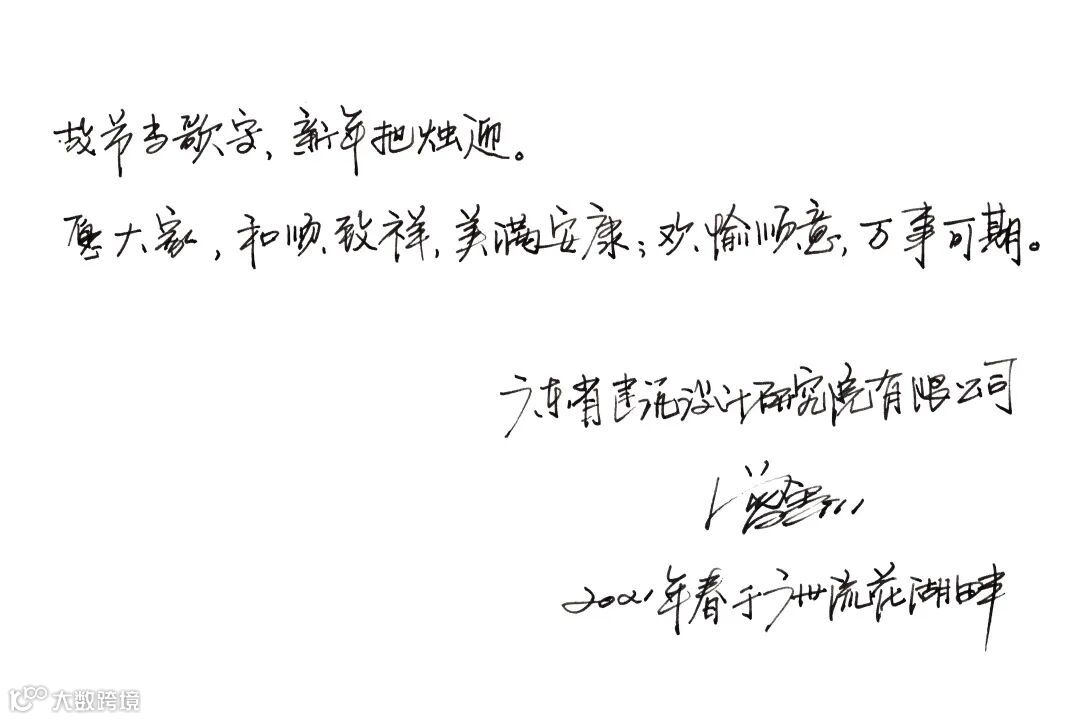 故节当歌守，新年把烛迎。
愿大家，和顺致祥，美满安康；欢愉顺意，万事可期。
广东省建筑设计研究院有限公司
2021年春于广州流花湖畔
大数跨境